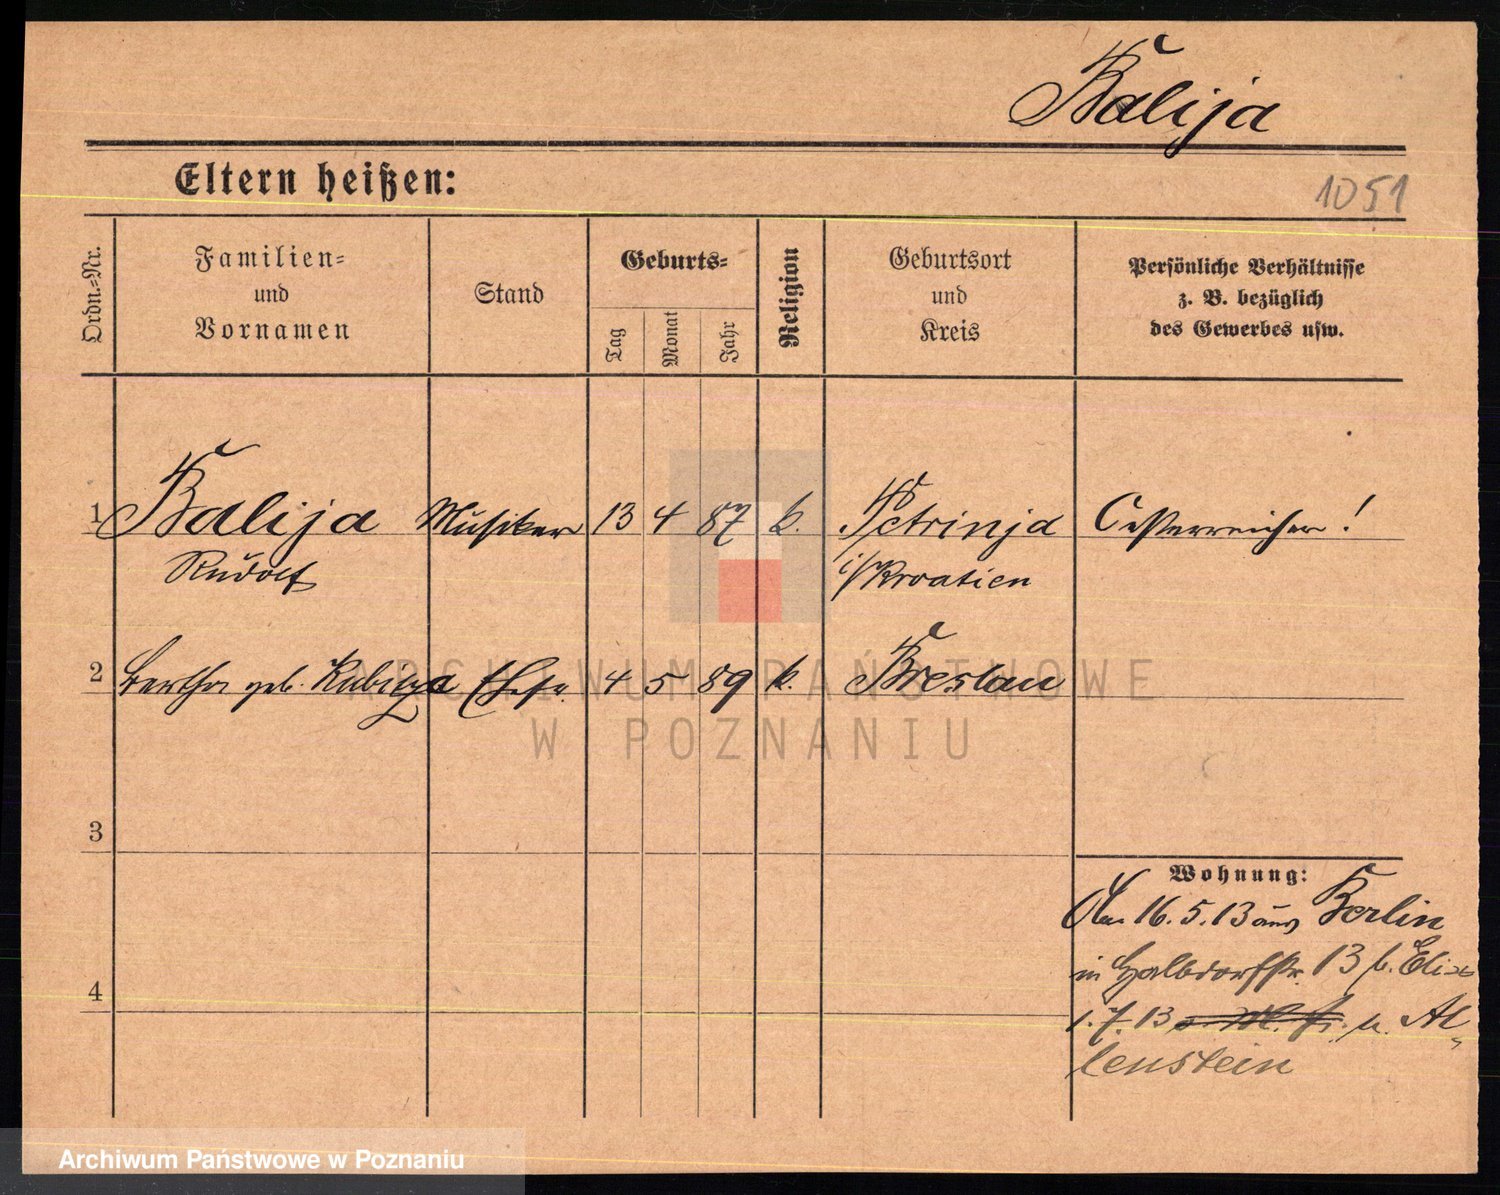 Balija
Eltern heißen:
1051
Ordn.-Nr.
Familien-
und
Vornamen
Stand
Geburts-
Tag
Monat
Jahr
Religion
Geburtsort
und
Kreis
Persönliche Verhältnisse
z. B. bezüglich
des Gewerbes usw.
1 Balija Musiker 13 4 87 k. Petrinja Oesterreicher!
Rudolf i/Kroatien
2 Bertha geb. Ehefr. 4 5 89 k. Breslau
3
Wohnung:
Am 16.5.13 aus Berlin
in Halbdorfstr. 13 b.
4
1.7.13 n. Al-
lenstein
ARCHIWUM PAŃSTWOWE
W POZNANIU
Archiwum Państwowe w Poznaniu